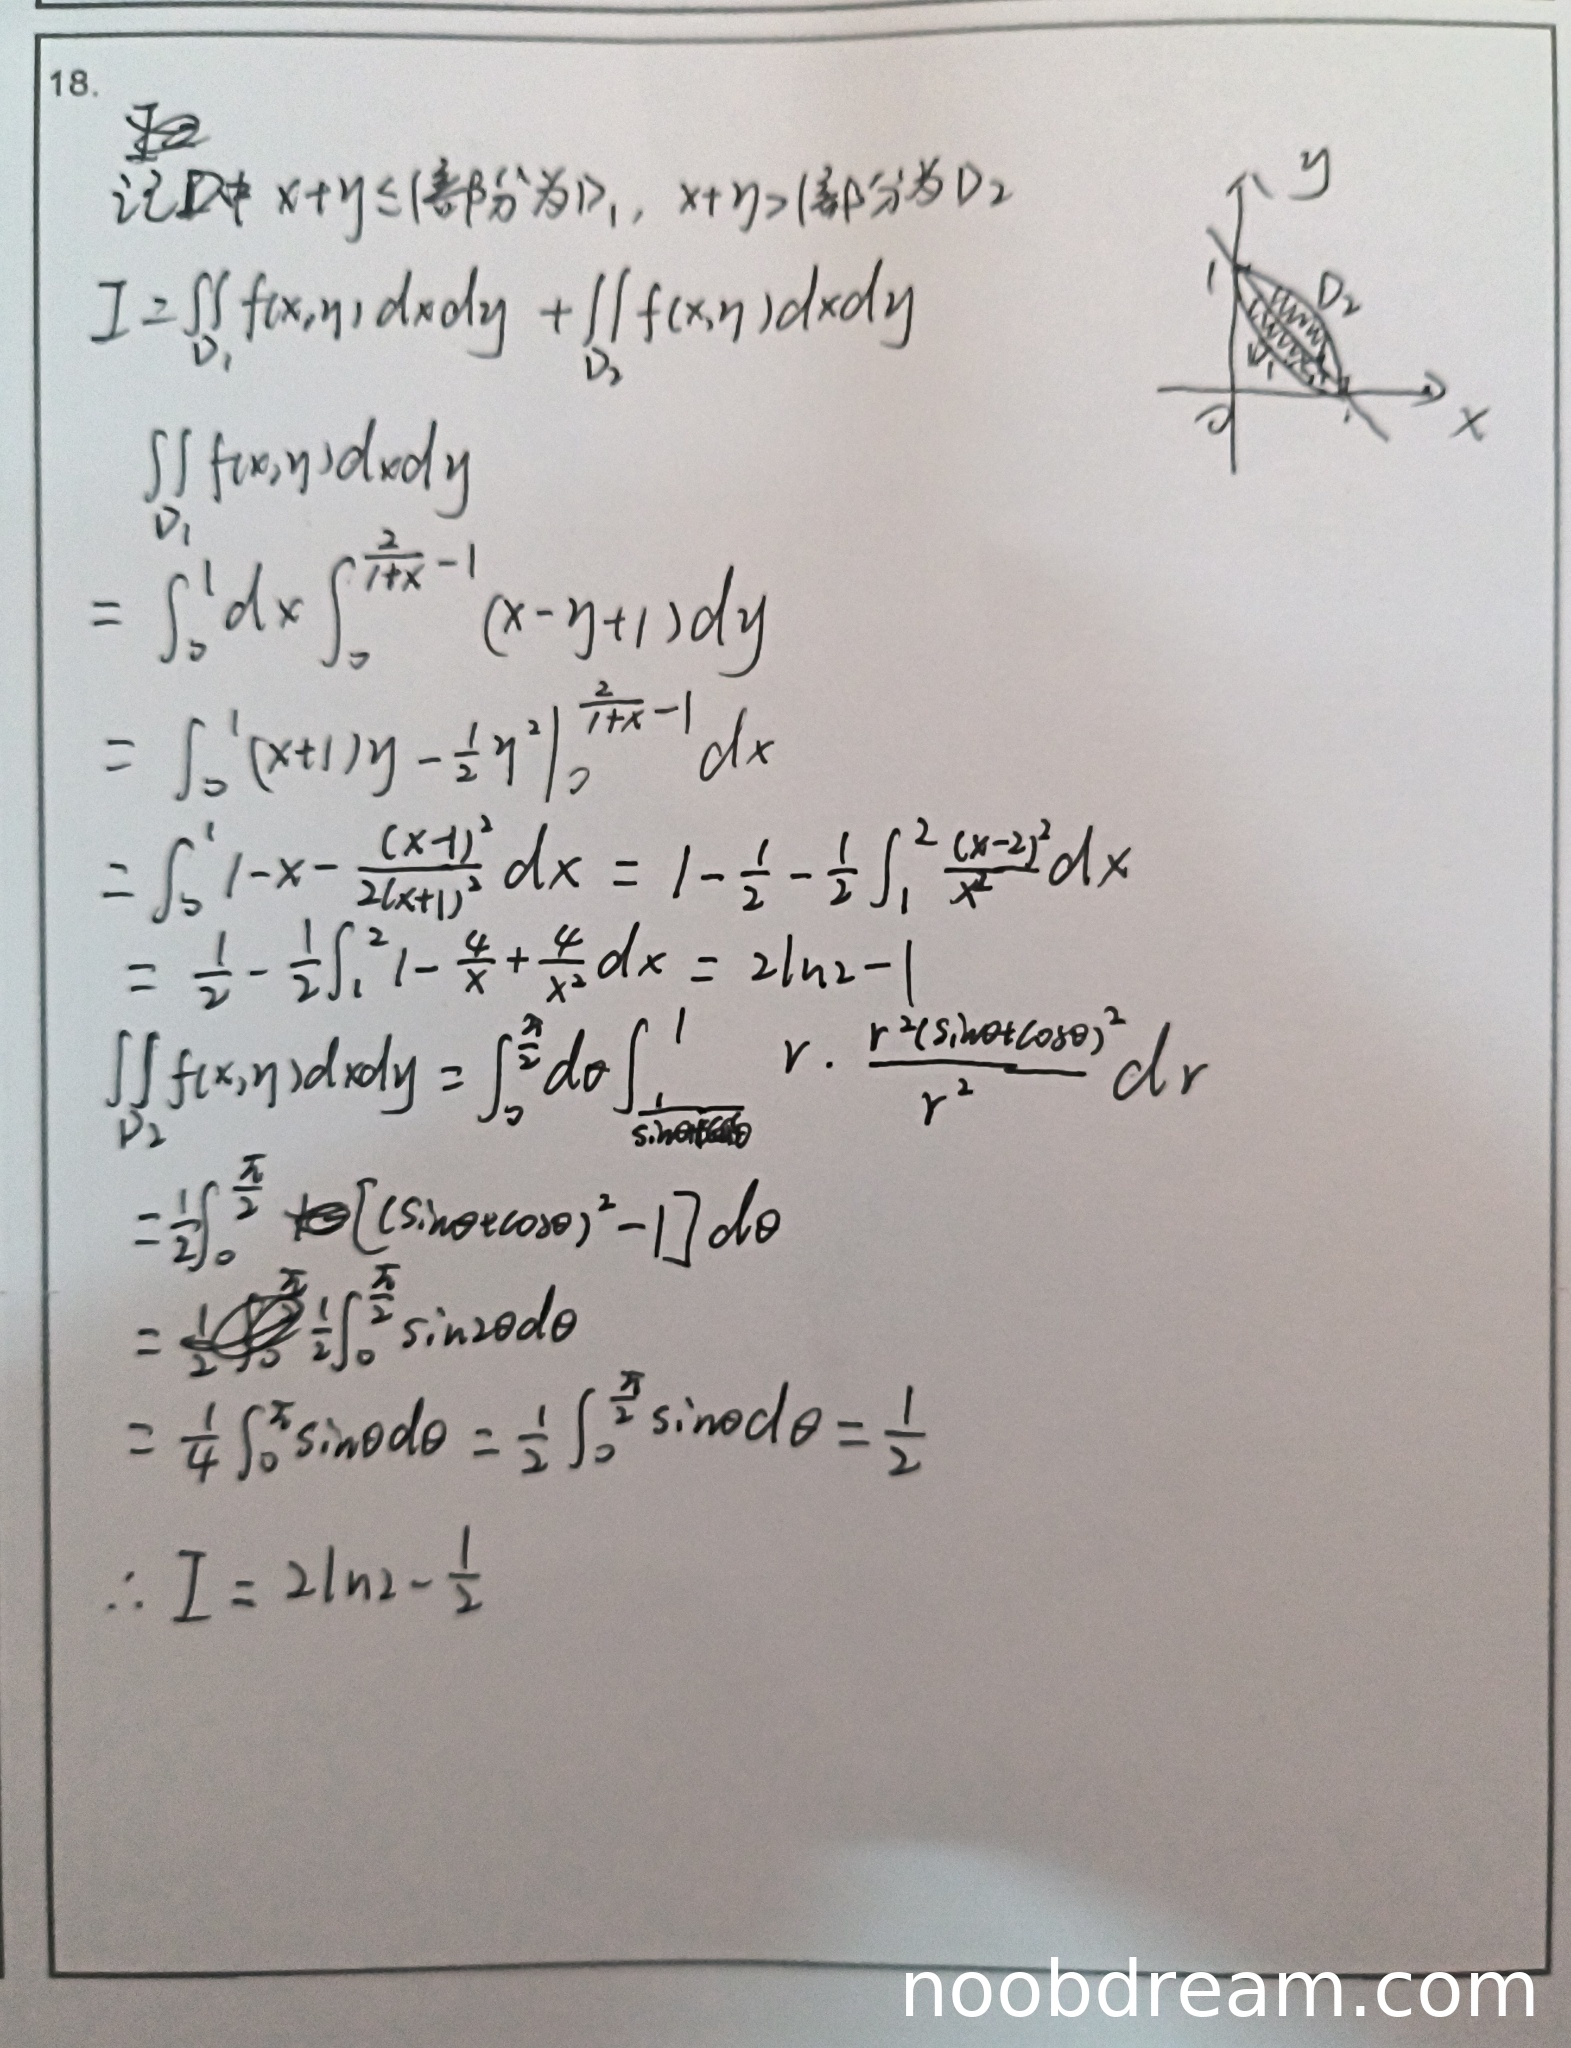 18.
记D中 x+y≤1部分为D₁, x+y>1部分为D₂
I = ∬_{D₁} f(x,y)dxdy + ∬_{D₂} f(x,y)dxdy
y
1
D₂
D₁
0
1
x
∬_{D₁} f(x,y)dxdy
= ∫₀¹ dx ∫₀^{2/(1+x) - 1} (x-y+1)dy
= ∫₀¹ (x+1)y - 1/2 y² |₀^{2/(1+x) - 1} dx
= ∫₀¹ 1-x- (x-1)²/(2(x+1)²) dx = 1 - 1/2 - 1/2 ∫₁² (x-2)²/x² dx
= 1/2 - 1/2 ∫₁² 1 - 4/x + 4/x² dx = 2ln2-1
∬_{D₂} f(x,y)dxdy = ∫₀^{π/2} dθ ∫_{1/(sinθ+cosθ)}^1 r · r²(sinθ+cosθ)²/r² dr
= 1/2 ∫₀^{π/2} [(sinθ+cosθ)²-1] dθ
= 1/2 ∫₀^{π/2} sin2θdθ
= 1/4 ∫₀^π sinθdθ = 1/2 ∫₀^{π/2} sinθdθ = 1/2
∴ I = 2ln2 - 1/2
noobdream.com